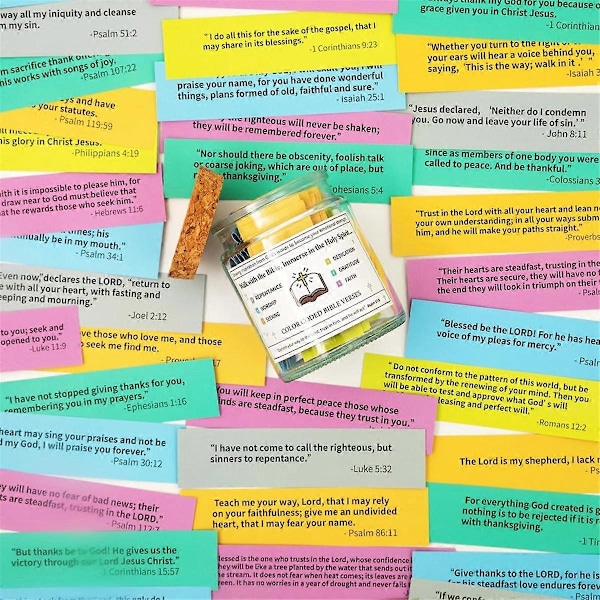 way all my iniquity and cleanse
m my sin.
-Psalm 51:2
m sacrifice thank
his works with songs of joy.
-Psalm 107:22
ys and have
your statutes.
- Psalm 119:59
his glory in Christ Jesus.
-Philippians 4:19
ith it is impossible to please him, for
draw near to God must believe that
at he rewards those who seek him."
- Hebrews 11:6
times; his
inually be in my mouth."
-Psalm 34:1
"Even now," declares the LORD, "return to
e with all your heart, with fasting and
eeping and mourning."
-Joel 2:12
to you; seek and
opened to you."
-Luke 11:9
ove those who love me, and those
seek me find me.
"I have not stopped giving thanks for you,
remembering you in my prayers."
-Ephesians 1:16
heart may sing your praises and not be
d my God, I will praise you forever."
-Psalm 30:12
ey will have no fear of bad news; their
ts are steadfast, trusting in the LORD."
-Psalm 112:7
"But thanks be to God! He gives us the
victory through our Lord Jesus Christ."
1 Corinthians 15:57
"I do all this for the sake of the gospel, that I
may share in its blessings."
-1 Corinthians 9:23
praise your name, for you have done wonderful
things, plans formed of old, faithful and sure."
- Isaiah 25:1
the righteous will never be shaken;
they will be remembered forever."
"Nor should there be obscenity, foolish talk
or coarse joking, which are out of place, but
thanksgiving."
phesians 5:4
Walk with the Bible, Immerse in the Holy Spirit...
REPENTANCE
WORSHIP
GIVING
DEDICATION
GRATITUDE
FAITH
COLOR CODED BIBLE VERSES
You will keep in perfect peace those whose
minds are steadfast, because they trust in you."
"I have not come to call the righteous, but
sinners to repentance."
-Luke 5:32
Teach me your way, Lord, that I may rely
on your faithfulness; give me an undivided
heart, that I may fear your name.
- Psalm 86:11
Blessed is the one who trusts in the Lord, whose confidence
they will be like a tree planted by the water that sends out
the stream. It does not fear when heat comes; its leaves are
It has no worries in a year of drought and never fails
always thank my God for you because o
grace given you in Christ Jesus.
-1 Corinthian
"Whether you turn to the right or
your ears will hear a voice behind you,
saying, 'This is the way; walk in it.' "
-Isaiah 3
"Jesus declared, 'Neither do I condemn
you. Go now and leave your life of sin.' "
- John 8:11
since as members of one body you were
called to peace. And be thankful."
-Colossians 3
"Trust in the Lord with all your heart and lean n
your own understanding; in all your ways subm
him, and he will make your paths straight.
-Proverbs
"Their hearts are steadfast, trusting in the
Their hearts are secure, they will have no f
the end they will look in triumph on their
-Psalm
"Blessed be the LORD! For he has hea
voice of my pleas for mercy."
-Psalm
"Do not conform to the pattern of this world, but be
transformed by the renewing of your mind. Then you
will be able to test and approve what God' s will
pleasing and perfect will."
-Romans 12:2
The Lord is my shepherd, I lack n
For everything God created is g
nothing is to be rejected if it is r
with thanksgiving.
-1 Tim
"Give thanks to the LORD, for he is
his steadfast love endures forev
"If we confess